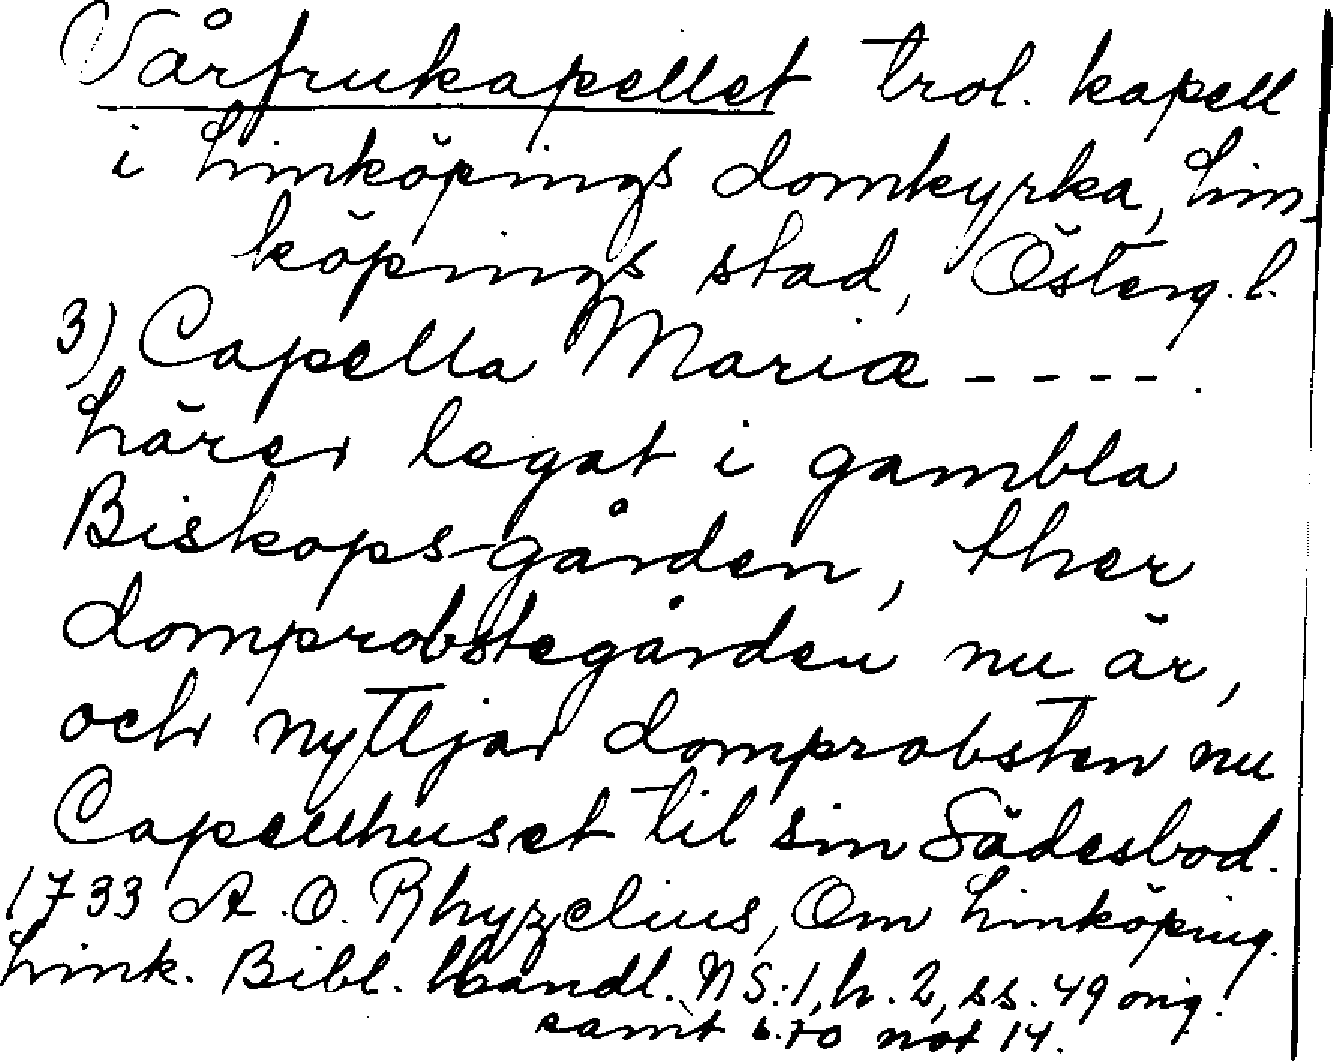 Vårfrukapellet trol. kapell
i Linköpings domkyrka, Lin-
köpings stad, Österg. l.
3) Capella Mariæ - - - - .
härer legat i gambla
Biskops-gården, ther
domprobstegården nu är,
och nyttjar domprobsten nu
Capellhuset til sin Sädesbod.
1733 A. O. Rhyzelius, Om Linköping.
Link. Bibl. Handl. NS:1, h. 2, ss. 49 orig.
samt s. 70 not 14.